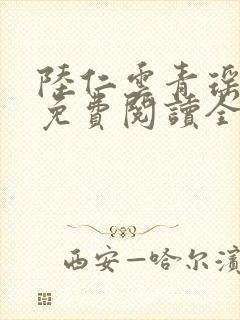 陸仁雲青瑤
免費閱讀全
西安—哈尔濱